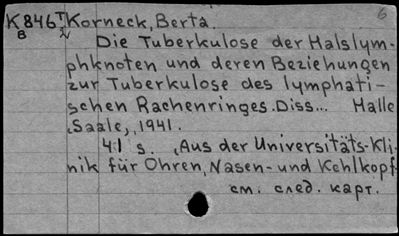 K846 T/N Korneck, Berta. 6
B
Die Tuberkulose der Halslym-
phknoten und deren Beziehungen
zur Tuberkulose des lymphati-
schen Rachenringes. Diss... Halle
(Saale), 1941.
41 s. (Aus der Universitäts-Kli-
nik für Ohren, Nasen- und Kehlkopf-
см. след. карт.